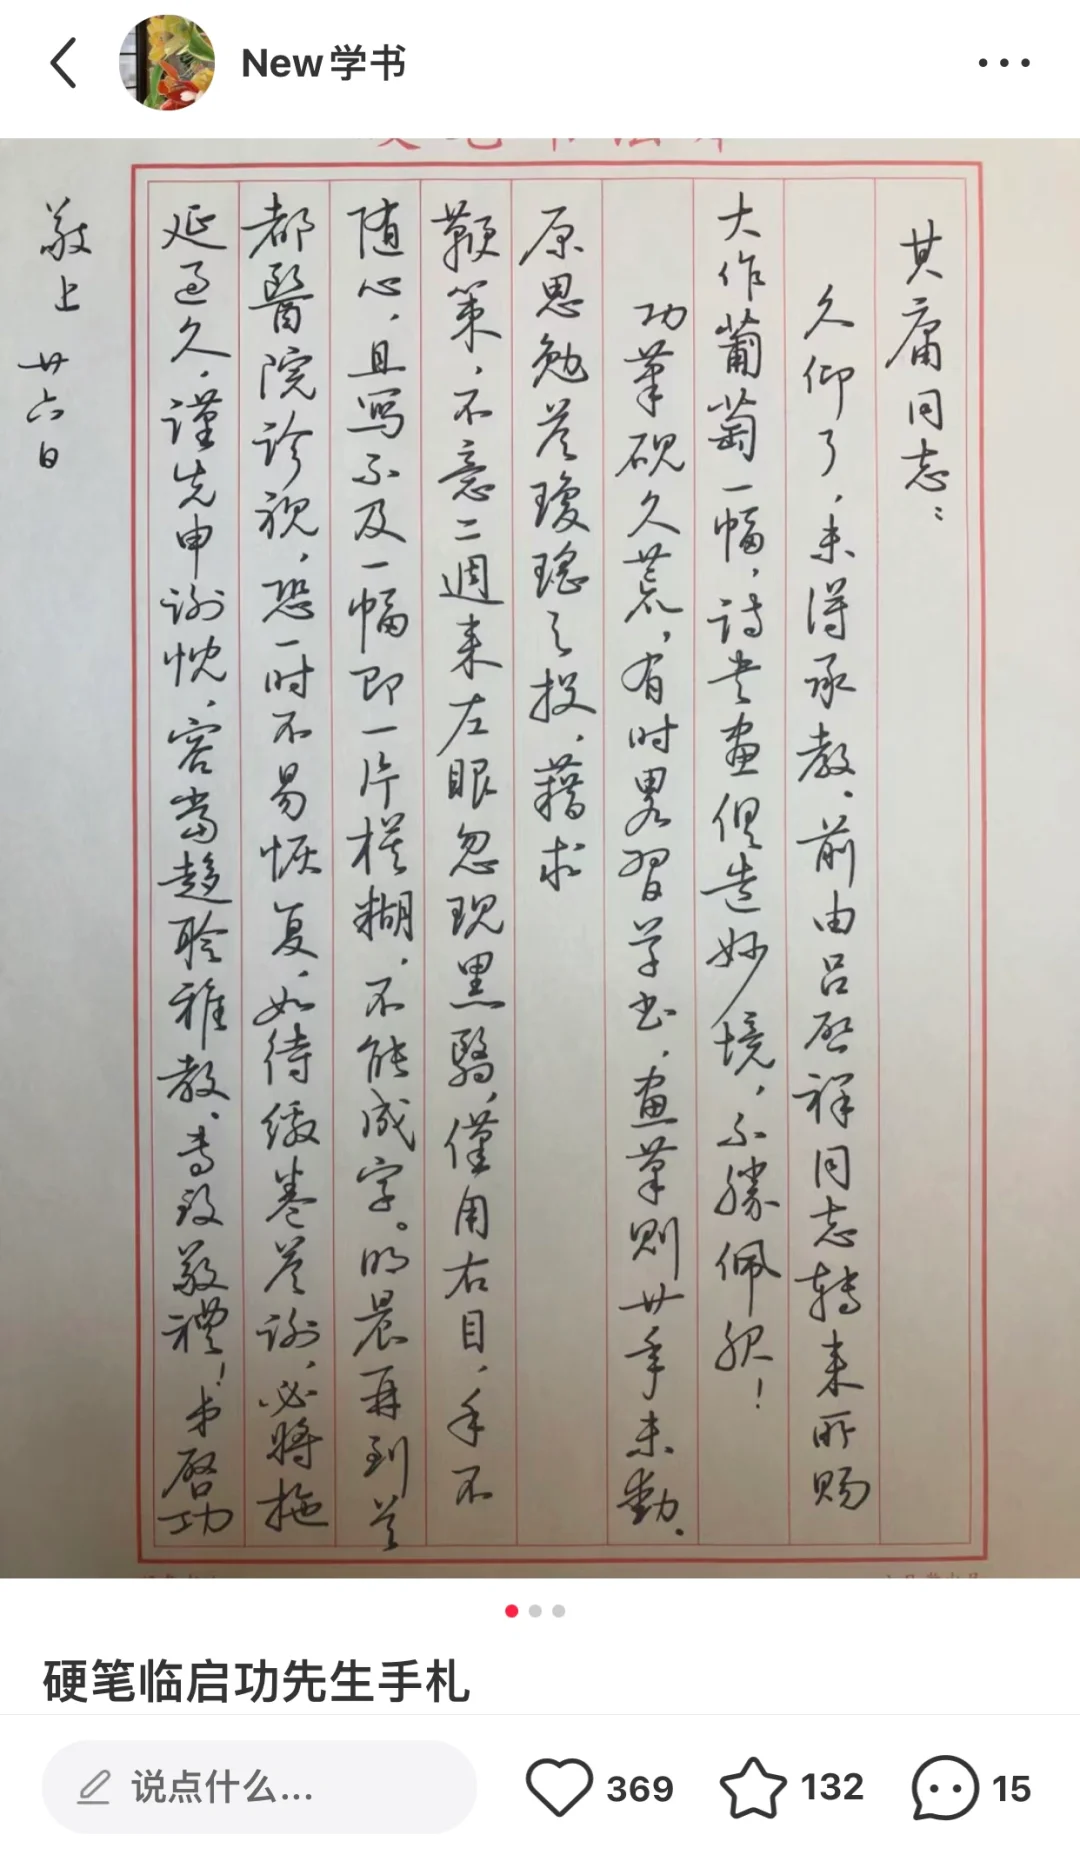 New学书
其庸同志：
久仰了，未得承教。前由吕启祥同志转来所赐
大作葡萄一幅，诗书画俱造妙境，不勝佩服！
功筆砚久荒，有时畧習学书，画筆则廿年未動。
原思勉答瓊瑤之投，藉求
鞭策，不意二週来左眼忽现黑翳，僅用右目，手不
随心，且写不及一幅即一片模糊，不能成字。明晨再到首
都醫院诊视，恐一时不易恢复，如待缴卷答谢，必将拖
延过久，谨先申谢忱，容当趋聆雅教，专致敬禮！弟启功
敬上 廿六日
硬笔临启功先生手札
说点什么...
369
132
15